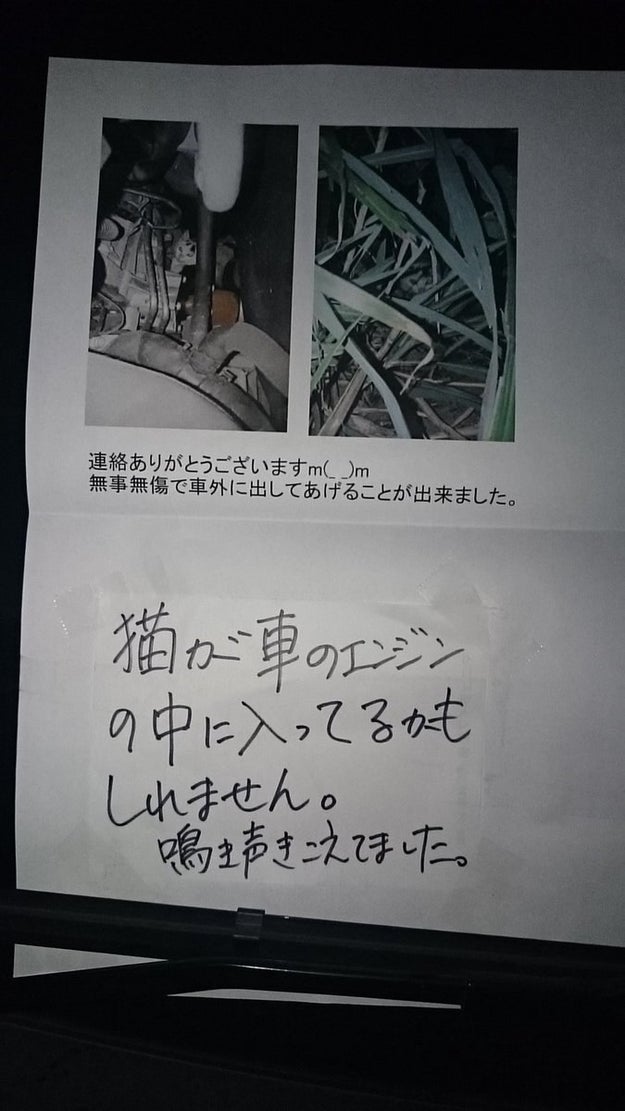 連絡ありがとうございますm(_ _)m
無事無傷で車外に出してあげることが出来ました。
猫が車のエンジン
の中に入ってるかも
しれません。
鳴き声きこえてました。